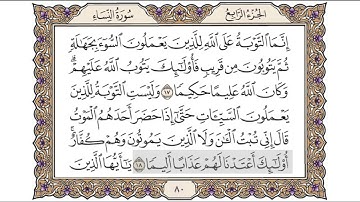 الجزء الرابع
سورة النساء
إِنَّمَا ٱلتَّوْبَةُ عَلَى ٱللَّهِ لِلَّذِينَ يَعْمَلُونَ ٱلسُّوٓءَ بِجَهَٰلَةٍ
ثُمَّ يَتُوبُونَ مِن قَرِيبٍ فَأُو۟لَٰٓئِكَ يَتُوبُ ٱللَّهُ عَلَيْهِمْ ۗ
وَكَانَ ٱللَّهُ عَلِيمًا حَكِيمًا ١٧ وَلَيْسَتِ ٱلتَّوْبَةُ لِلَّذِينَ
يَعْمَلُونَ ٱلسَّيِّـَٔاتِ حَتَّىٰٓ إِذَا حَضَرَ أَحَدَهُمُ ٱلْمَوْتُ
قَالَ إِنِّى تُبْتُ ٱلْـَٰٔنَ وَلَا ٱلَّذِينَ يَمُوتُونَ وَهُمْ كُفَّارٌ ۚ
أُو۟لَٰٓئِكَ أَعْتَدْنَا لَهُمْ عَذَابًا أَلِيمًا ١٨ يَٰٓأَيُّهَا ٱلَّذِينَ
٨٠